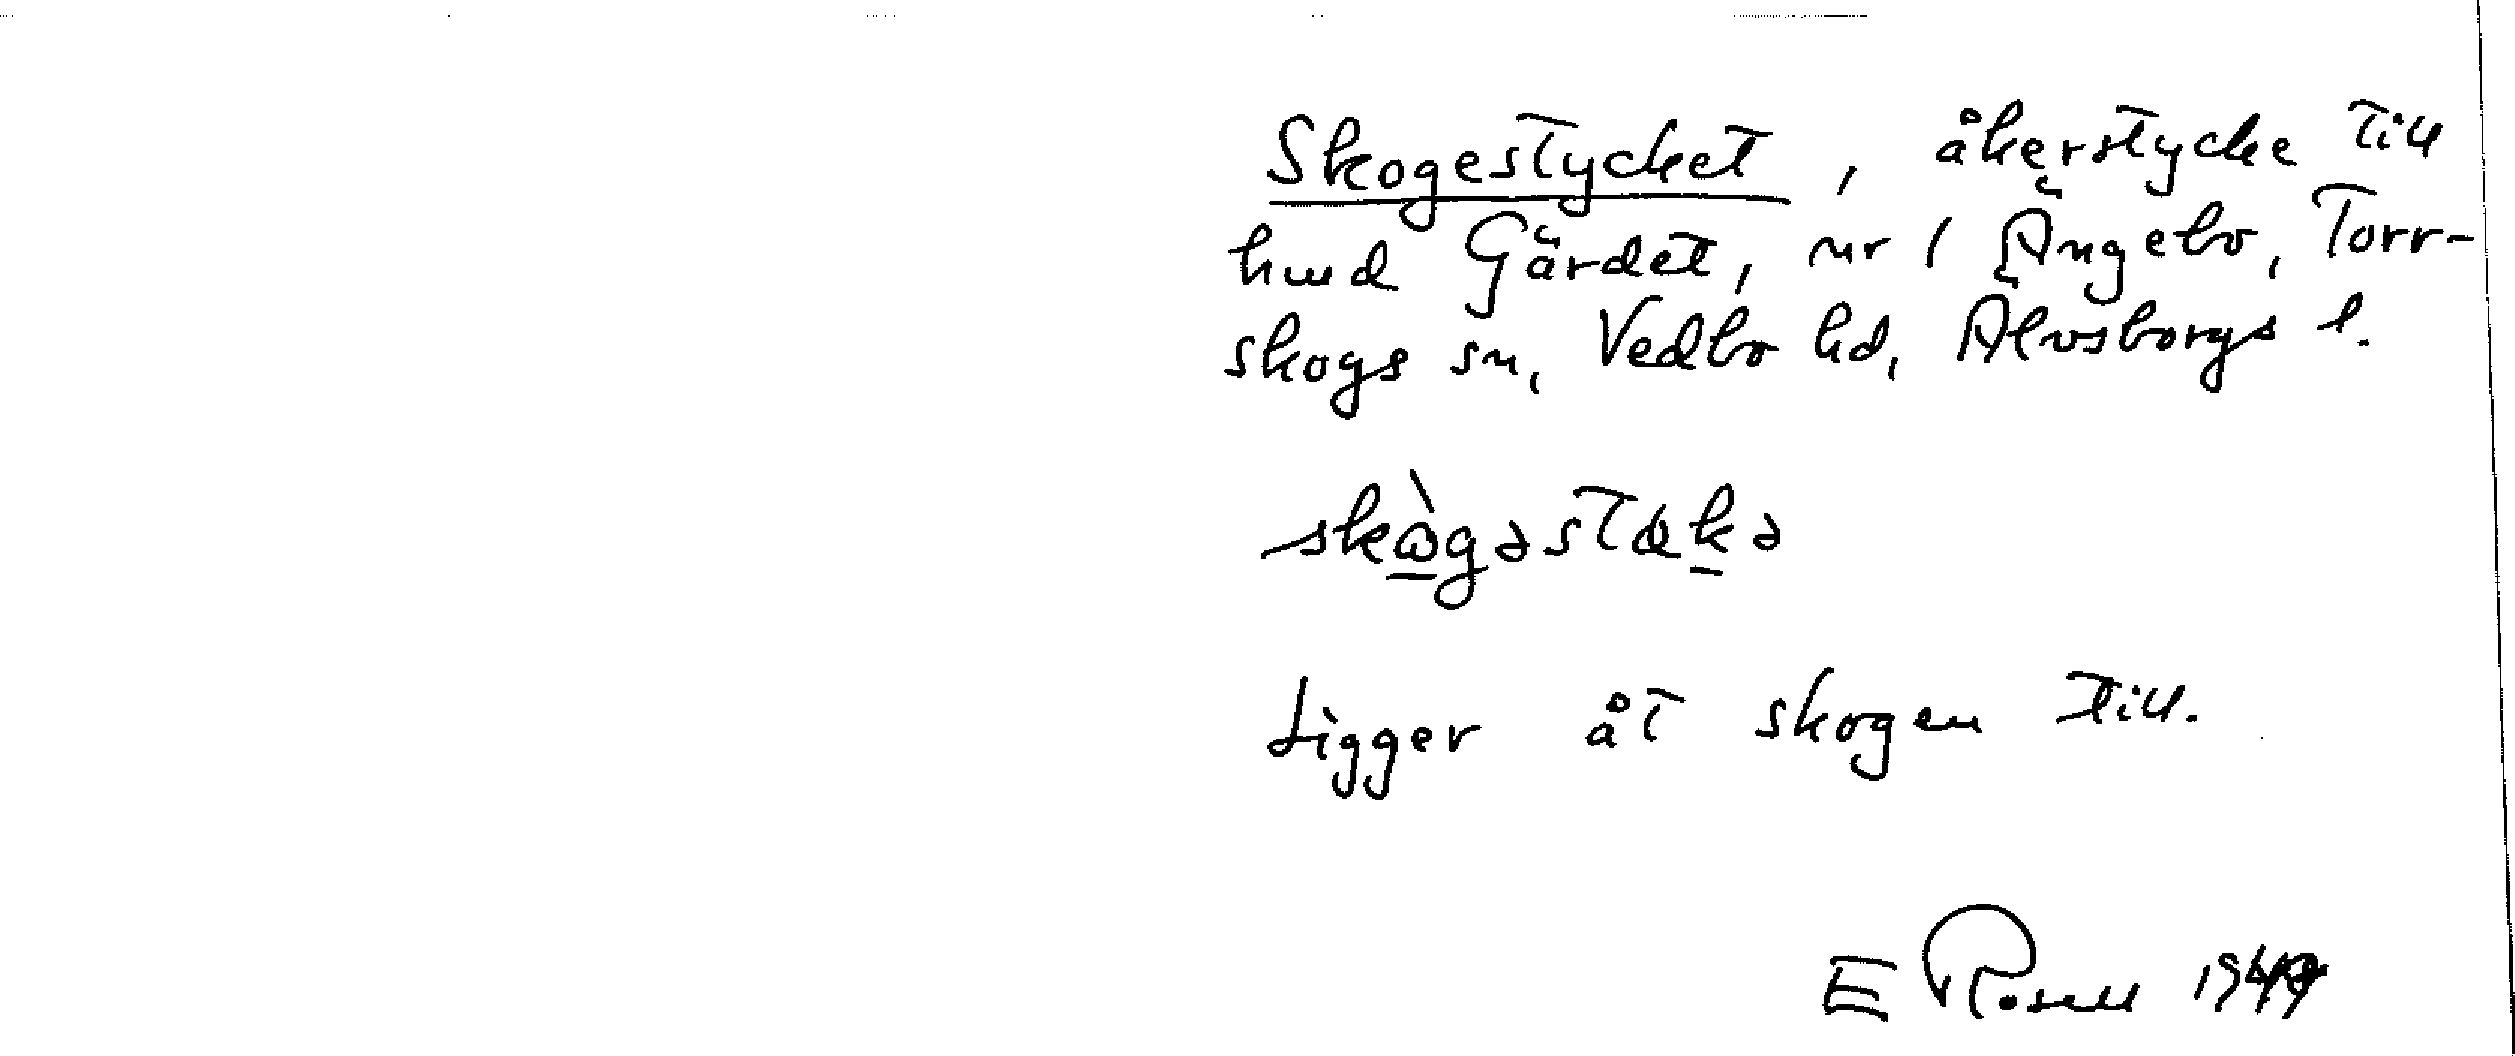 Skogestycket, åkerstycke till
hmd Gärdet, nr 1 Ängebo, Torr-
skogs sn, Vedbo hd, Älvsborgs l.
skògəstøkə
Ligger åt skogen till.
E Rosell